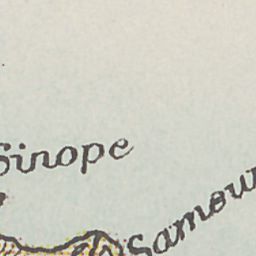 Sinope
Samsoun